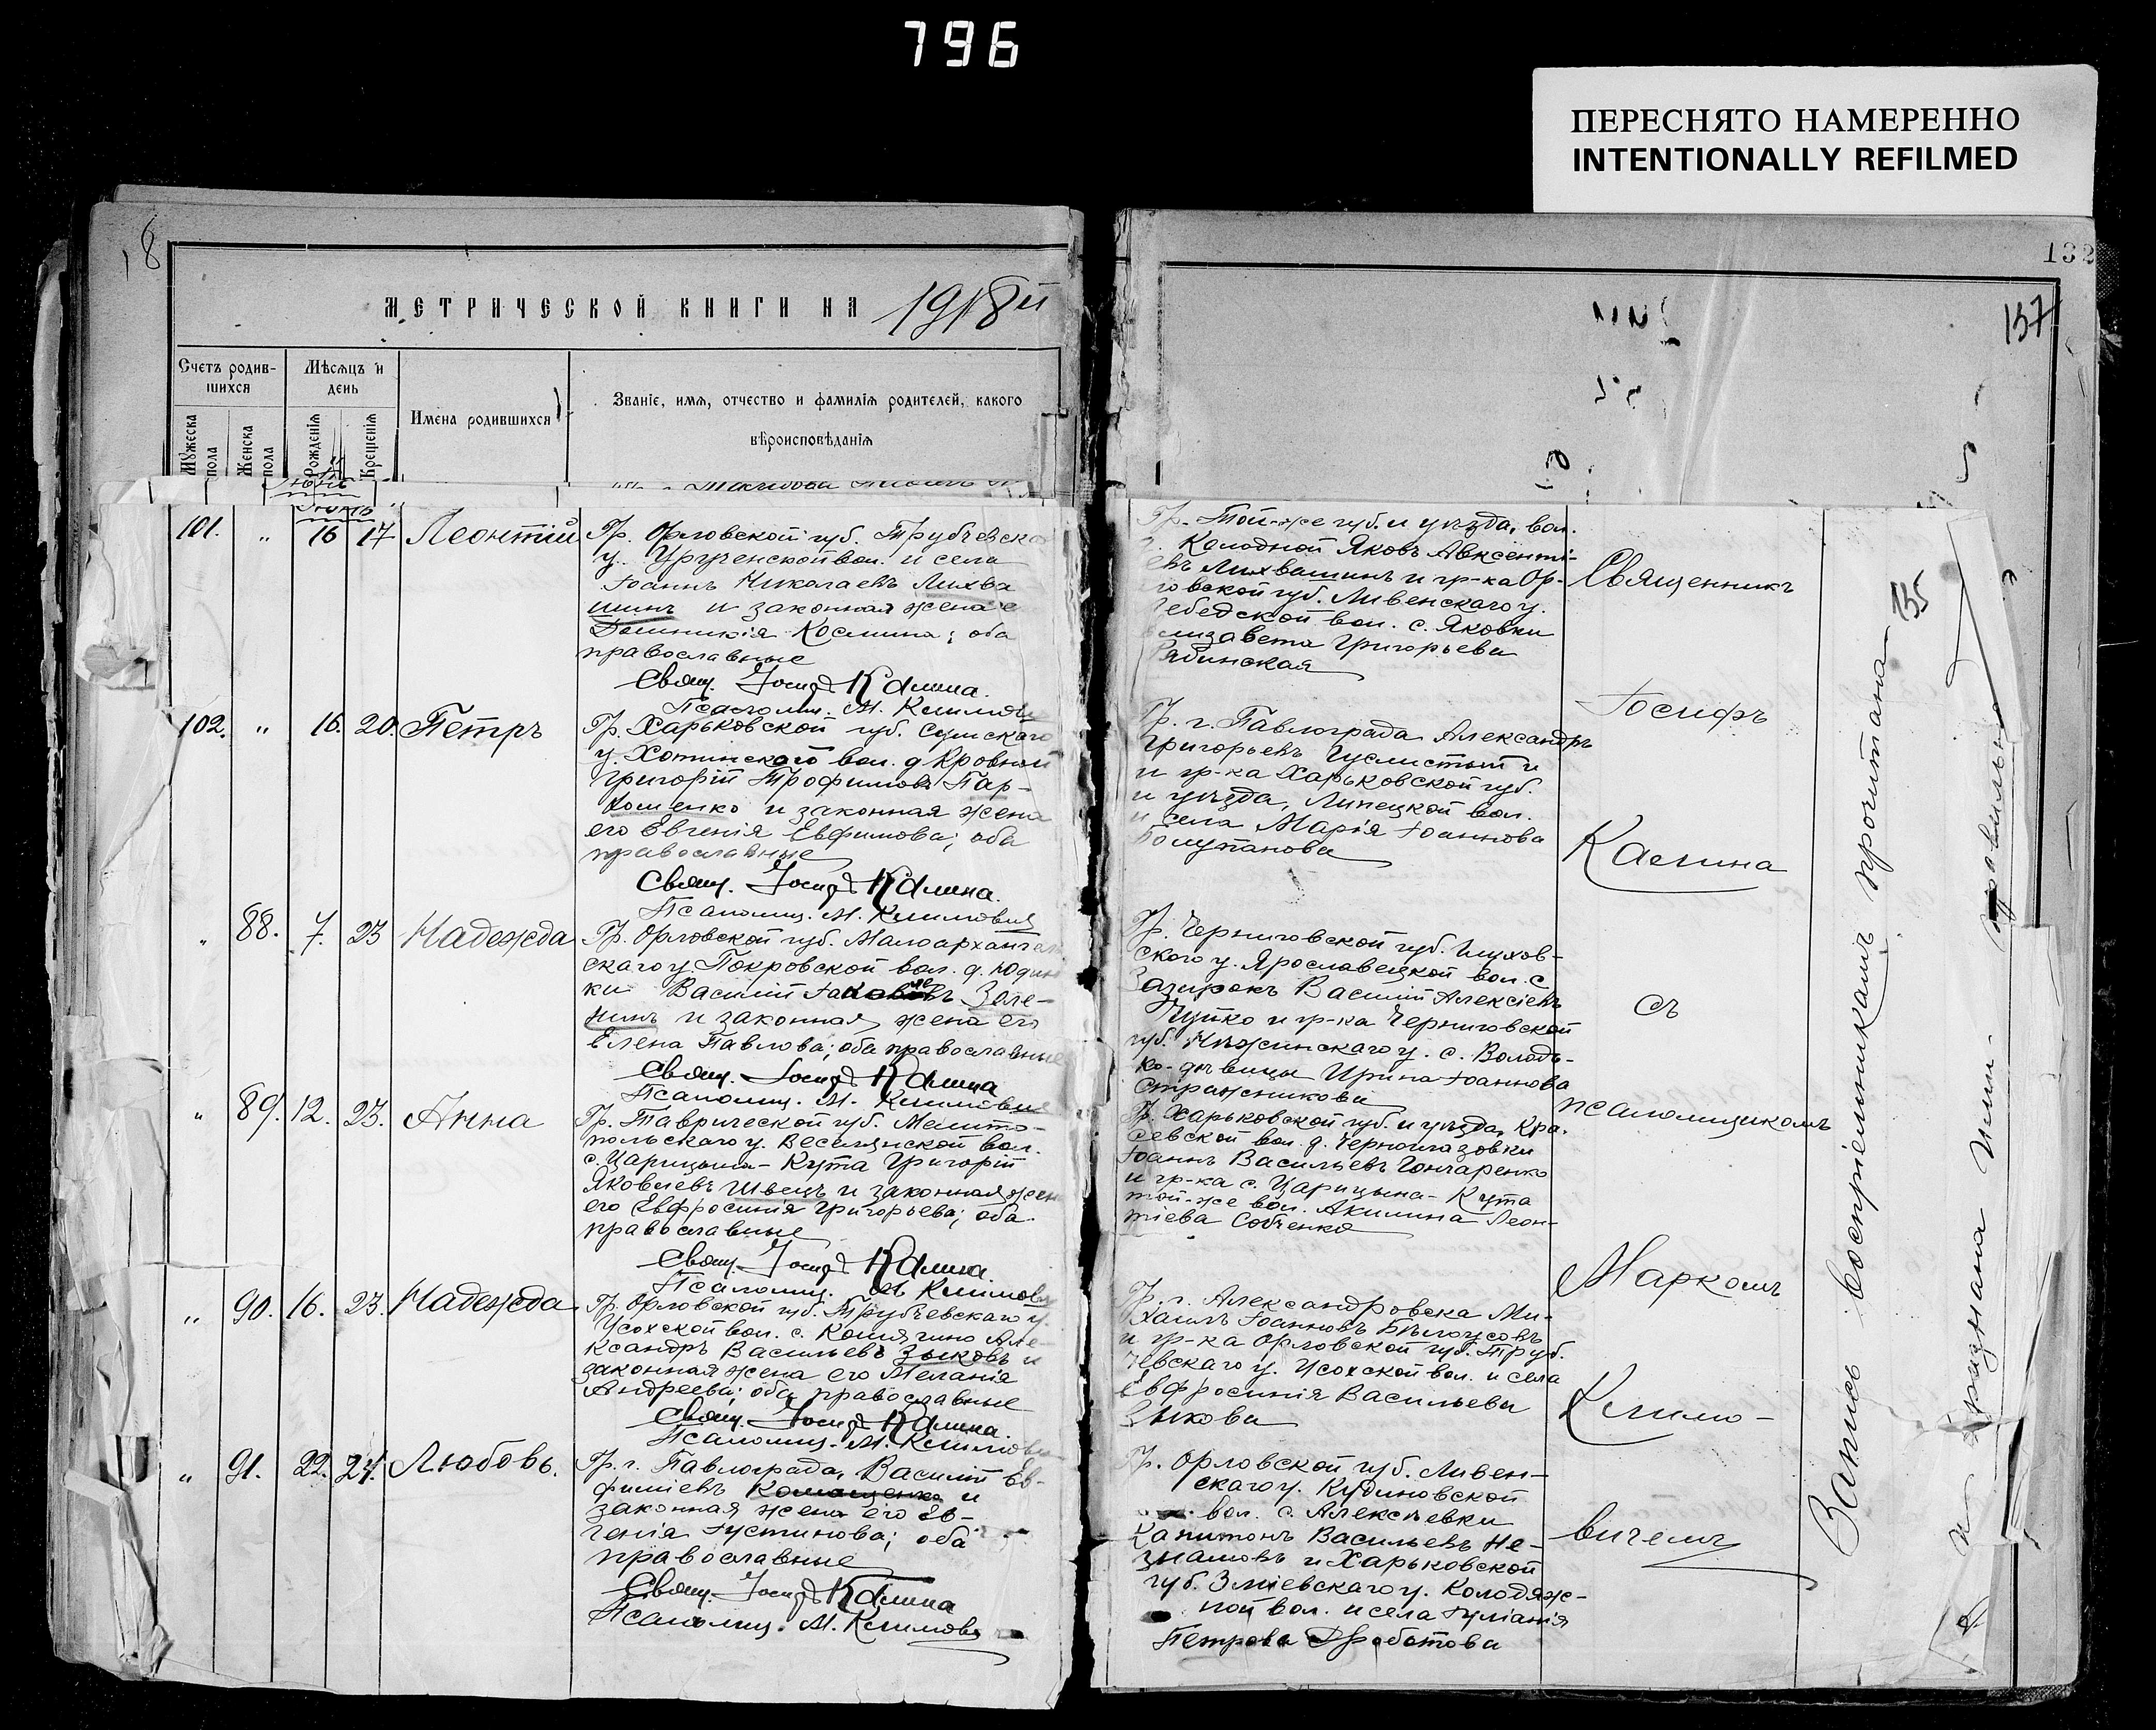 796
ПЕРЕСНЯТО НАМЕРЕННО
INTENTIONALLY REFILMED
18
МЕТРИЧЕСКОЙ КНИГИ НА 1918й
Счетъ родив-
шихся
Мѣсяцъ и
день
Имена родившихся
Званіе, имя, отчество и фамилія родителей, какого
вѣроисповѣданія
Мужеска
пола
Женска
пола
Рожденія
Крещенія
101. „ 16 17 Леонтій
Гр. Орловской губ. Трубчевска
у. Урученской вол. и села
Іоаннъ Николаевъ Лихва
шинъ и законная жена е
Домникія Космина; оба
православные
Свящ. Іосифъ Калина.
Псаломщ. М. Климов
102. „ 16. 20. Петръ
Гр. Харьковской губ. Сумскаго
у. Хотинской вол. д. Кровной
Григорій Трофимовъ Пар-
хоменко и законная жена
его Евгенія Евфимова; оба
православные
Свящ. Іосифъ Калина.
Псаломщ. М. Климович
„ 88. 7. 23 Надежда
Гр. Орловской губ. Малоархангел
скаго у. Покровской вол. д. Юдин
ки Василій Зале-
нинъ и законная жена его
Елена Павлова; оба православные
Свящ. Іосифъ Калина
Псаломщ. М. Климович
„ 89. 12. 23. Анна
Гр. Таврической губ. Мелито-
польскаго у. Веселянской вол.
с. Царицына-Кута Григорій
Яковлевъ Швецъ и законная жен
его Евфросинія Григорьева; оба
православные
Свящ. Іосифъ Калина.
Псаломщ. М. Климович
„ 90. 16. 23. Надежда
Гр. Орловской губ. Трубчевскаго у.
Усохской вол. с. Комягино Але-
ксандръ Васильевъ Зыковъ и
законная жена его Меланія
Андреева; оба православные
Свящ. Іосифъ Калина.
Псаломщ. М. Климови
„ 91. 22. 24. Любовь.
Гр. г. Павлограда, Василій Ев-
фиміевъ и
законная жена его Ев-
генія Іустинова; оба
православные
Свящ. Іосифъ Калина
Псаломщ. М. Климов
132
137
Гр. Той-же губ. и уѣзда, вол.
Колодной Яковъ Авксенті-
евъ Лихвашинъ и гр-ка Ор-
ловской губ. Ливенскаго у.
вол. с. Яковки
Елизавета Григорьева
Рябинская
Гр. г. Павлограда Александръ
Григорьевъ Гуслистый и
и гр-ка Харьковской губ.
и уѣзда, Липецкой вол.
и села Марія Іоаннова
Гр. Черниговской губ. Глухов-
скаго у. Ярославецкой вол. с.
Зазирокъ Василій Алексіевъ
и гр-ка Черниговской
губ. Нѣжинскаго у. с. Володь-
ко-дѣвицы Ирина Іоаннова
Стражникова
Гр. Харьковской губ. и уѣзда,
вол. д. Черноглазовки
Іоаннъ Васильевъ Гончаренко
и гр-ка с. Царицына-Кута
той-же вол. Акилина Леон-
тіева Собченко
Гр. г. Александровска Ми-
хаилъ Іоанновъ Бѣлоусовъ
и гр-ка Орловской губ. Труб-
чевскаго у. Усохской вол. и села
Евфросинія Васильева
Зыкова
Гр. Орловской губ. Ливен-
скаго у. Кудиновской
вол. с. Алексѣевки
Капитонъ Васильевъ Не-
знамовъ и Харьковской
губ. Зміевскаго у. Колодяж-
ной вол. и села Іуліанія
Петрова Дроботова
Священникъ
Іосифъ
Калина
съ
псаломщикомъ
Маркомъ
Климо-
вичемъ
Запись воспріемникамъ прочитана
135
и признана ими
правильно